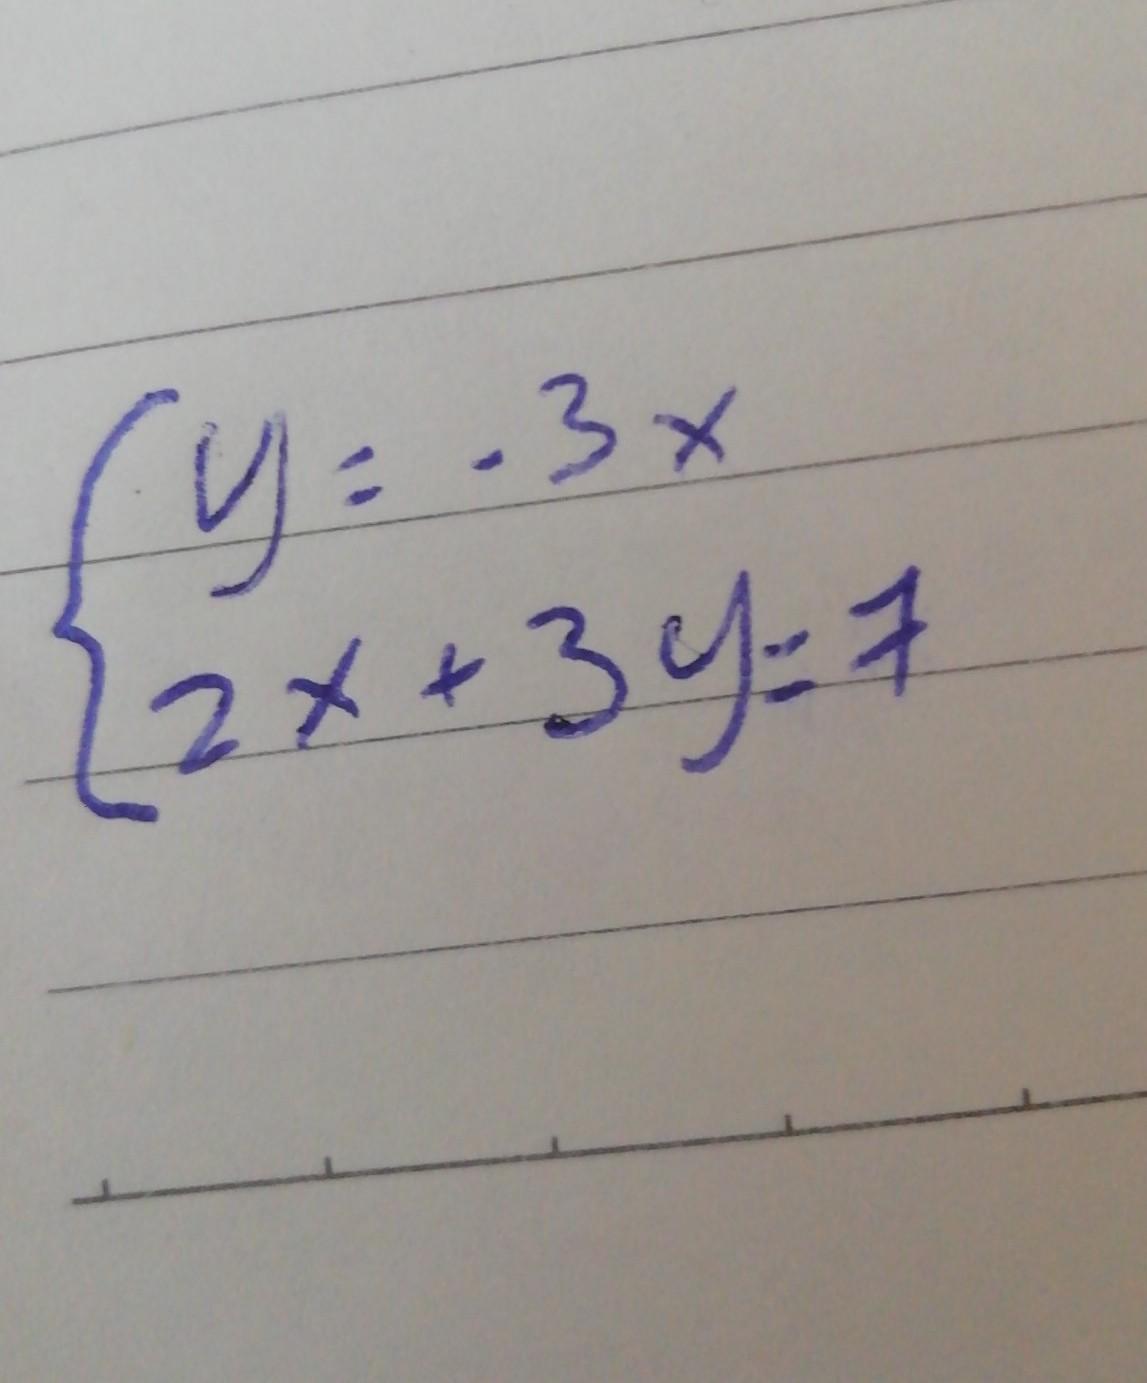 y = -3x
2x + 3y = 7